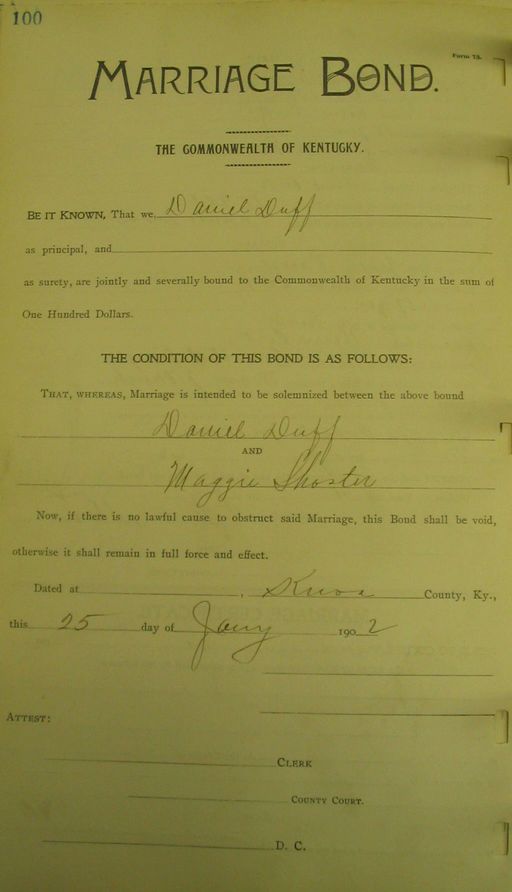 100
Form 75.
MARRIAGE BOND.
THE COMMONWEALTH OF KENTUCKY.
BE IT KNOWN, That we, Daniel Duff
as principal, and
as surety, are jointly and severally bound to the Commonwealth of Kentucky in the sum of
One Hundred Dollars.
THE CONDITION OF THIS BOND IS AS FOLLOWS:
THAT, WHEREAS, Marriage is intended to be solemnized between the above bound
Daniel Duff
AND
Maggie Shoster
Now, if there is no lawful cause to obstruct said Marriage, this Bond shall be void,
otherwise it shall remain in full force and effect.
Dated at , Knox County, Ky.,
this 25 day of Jany 1902
ATTEST:
CLERK
COUNTY COURT.
D. C.